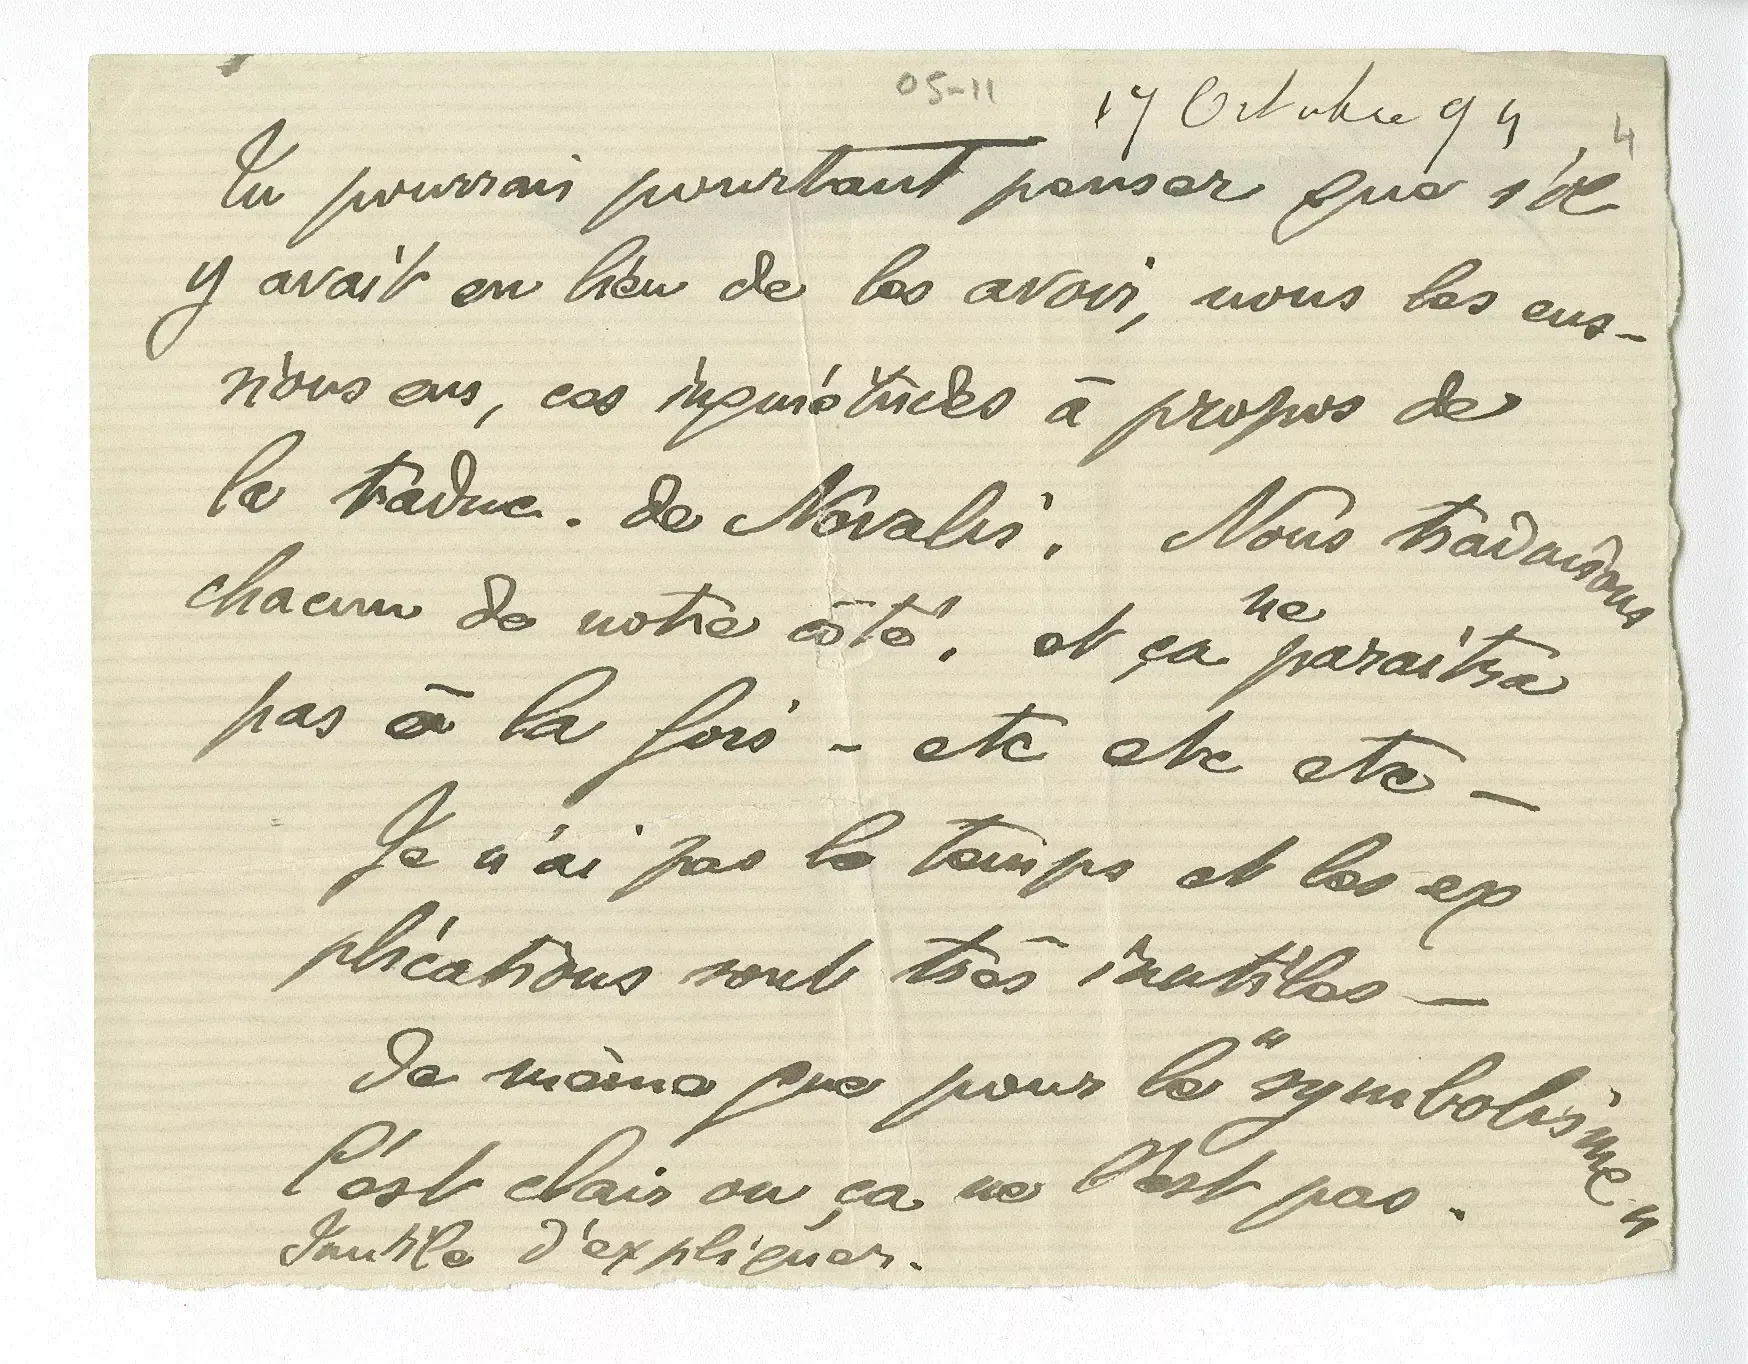 05-11
17 Octobre 94
4
Tu pourrais pourtant penser que s'il
y avait eu lieu de les avoir, nous les eus-
sions eus, ces inquiétudes à propos de
la traduc. de Novalis. Nous traduisons
chacun de notre côté. et ça ne paraitra
pas à la fois - etc etc etc —
Je n'ai pas le temps et les ex
plications sont très inutiles —
De même que pour le "symbolisme"
C'est clair ou ça ne l'est pas.
Inutile d'expliquer.